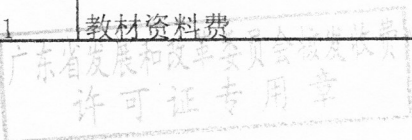 1 教材资料费
广东省发展和改革委员会核发收费
许可证专用章